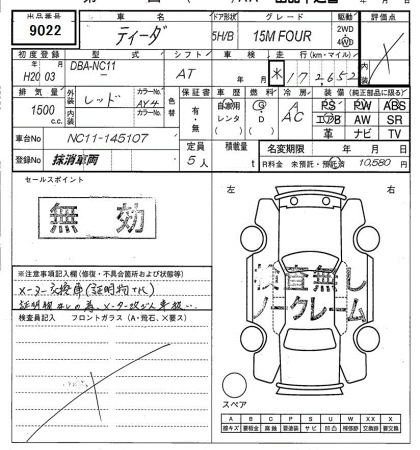 出品番号 車名 ドア形状 グレード 駆動 評価点
9022 ティーダ 5H/B 15M FOUR 2WD 4WD
初度登録 型式 シフト 車検 走行(km・マイル)
H20年 03月 DBA-NC11- AT 年 月 * 17 2,652
排気量 外装 レッド カラーNo. AY4 色替 保証書 車歴 燃料 冷房 装備(純正部品に限る)
1500 c.c. 内装 カラーNo. 有・無 自家用 レンタ G D AC PS PW ABS
エアB AW SR
革 ナビ TV
車台No NC11-145107 定員 積載量 名変期限 年 月 日
登録No 抹消車両 5人 t R料金 未預託・預託済 10,580円
セールスポイント 左 右
無効
検査無し
ノークレーム
※注意事項記入欄(修復・不具合箇所および状態等)
メーター交換車(証明物ナシ)
検査員記入 フロントガラス(A・飛石、×要ス)
スペア
A B C P S U W X XX X
線キズ 要板金 腐蝕 要塗装 サビ 凹凸 補修跡 交換跡 要交換